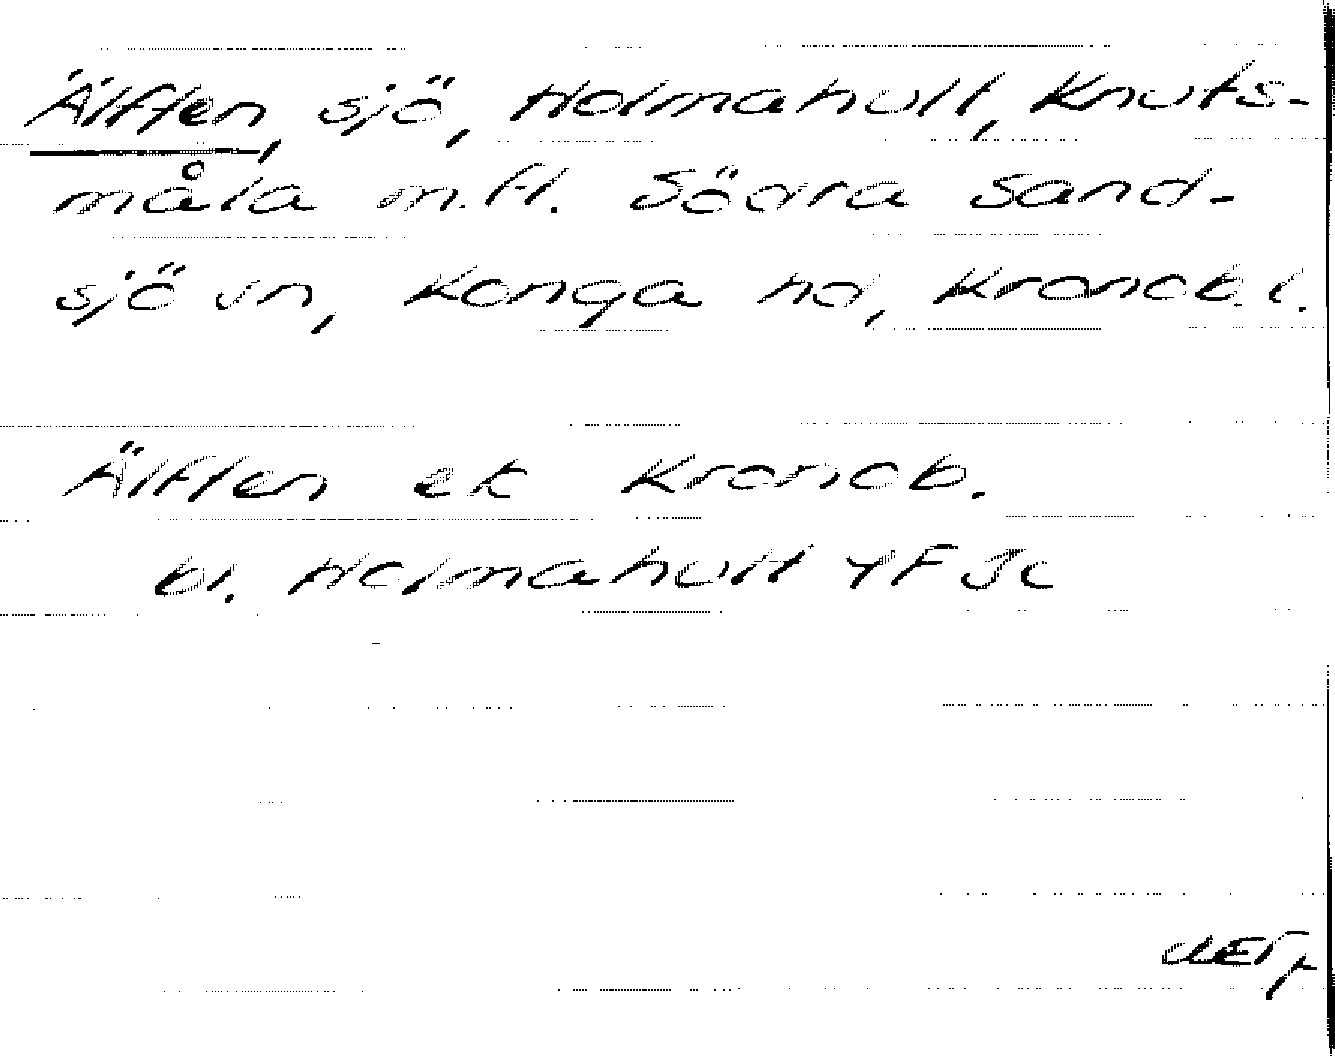 Älften, sjö, Holmahult, Knuts-
måla m.fl. Södra Sand-
sjö sn, Konga hd, Kronob. l.
Älften ek Kronob.
bl. Holmahult 4F